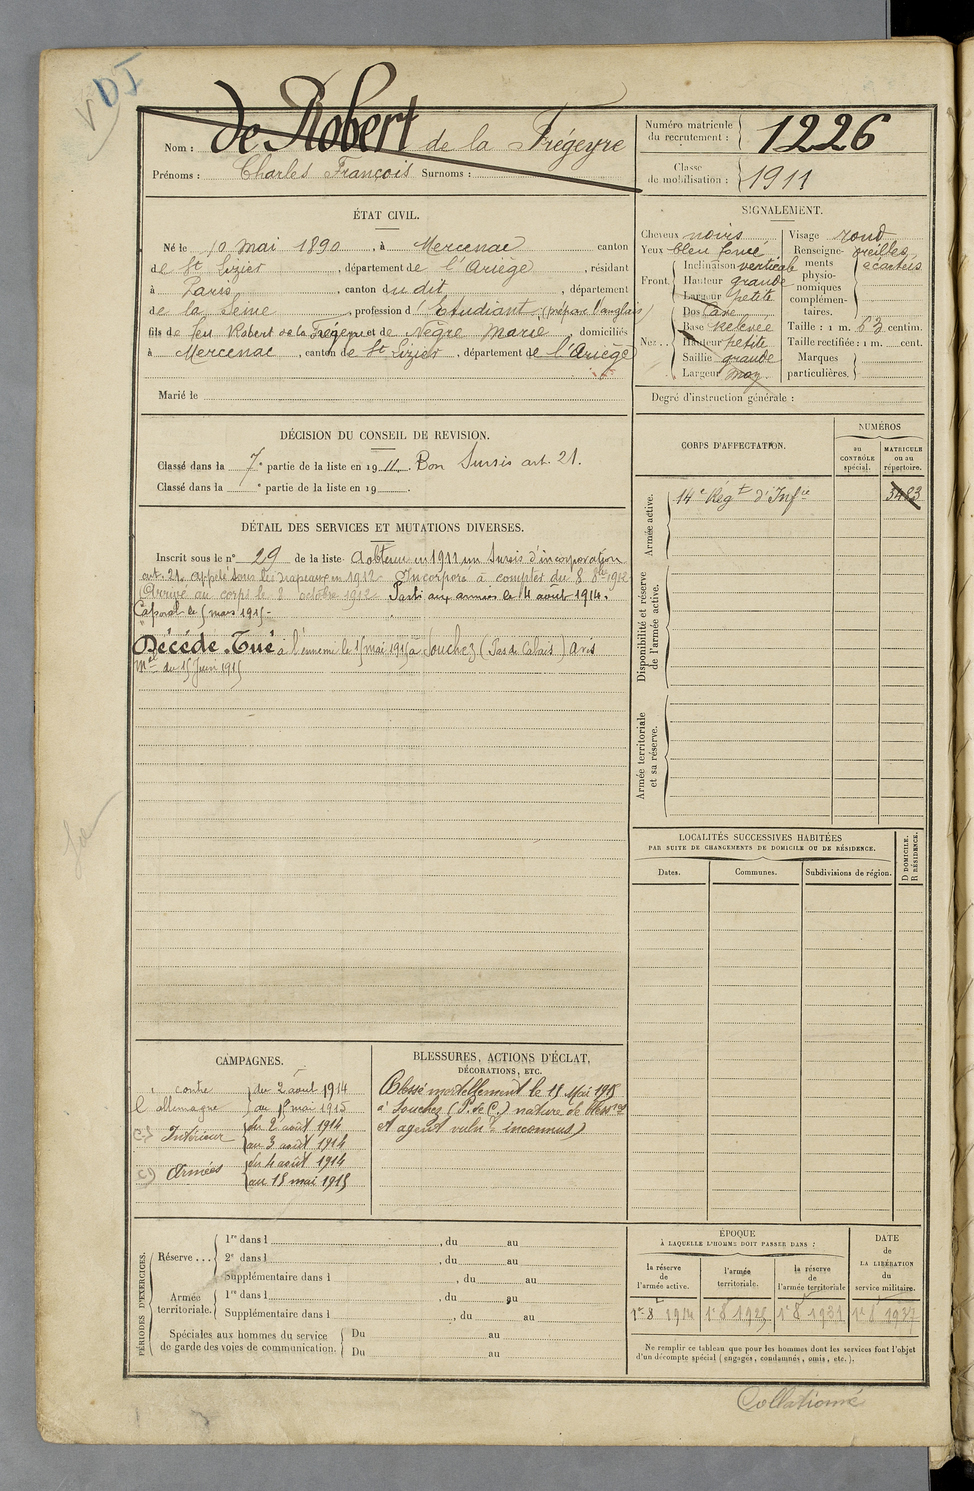 V DJ
Nom : de Robert de la Frégeyre
Prénoms : Charles François Surnoms :
Numéro matricule du recrutement : 1226
Classe de mobilisation : 1911
ÉTAT CIVIL.
Né le 10 Mai 1890, à Mercenac canton
de St Lizier, département de l'Ariège, résidant
à Paris, canton du dit, département
de la Seine, profession d'Etudiant (prépare l'anglais)
fils de feu Robert de la Fregeyre et de Nègre Marie, domiciliés
à Mercenac, canton de St Lizier, département de l'Ariège
Marié le
SIGNALEMENT.
Cheveux noirs
Yeux bleu foncé
Front. Inclinaison verticale
Hauteur grande
Largeur petite
Nez .. Dos Cave
Base Relevée
Hauteur petite
Saillie grande
Largeur moy
Visage rond
Renseignements physionomiques complémentaires. oreilles écartées
Taille : 1 m. 63 centim.
Taille rectifiée : 1 m. cent.
Marques particulières.
Degré d'instruction générale :
DÉCISION DU CONSEIL DE REVISION.
Classé dans la 7e partie de la liste en 1911. Bon Sursis art. 21.
Classé dans la e partie de la liste en 19 .
DÉTAIL DES SERVICES ET MUTATIONS DIVERSES.
Inscrit sous le n° 29 de la liste A obtenu en 1911 un Sursis d'incorporation
art. 21. appelé sous les drapeaux en 1912. Incorporé à compter du 8 8bre 1912
Arrivé au corps le 8 octobre 1912. Parti aux armées le 4 août 1914.
Caporal le 5 mars 1915-
Décédé. Tué à l'ennemi le 15 mai 1915 à Souchez (Pas de Calais) Avis
Mel du 15 Juin 1915
CORPS D'AFFECTATION.
NUMÉROS
au CONTRÔLE spécial.
MATRICULE ou au répertoire.
Armée active.
14e Régt d'Infie 3483
Disponibilité et réserve de l'armée active.
Armée territoriale et sa réserve.
LOCALITÉS SUCCESSIVES HABITÉES
PAR SUITE DE CHANGEMENTS DE DOMICILE OU DE RÉSIDENCE.
Dates.
Communes.
Subdivisions de région.
D DOMICILE.
R RÉSIDENCE.
CAMPAGNES.
contre l'allemagne du 2 août 1914
au 15 mai 1915
C.S Intérieur du 2 août 1914
au 3 août 1914
CD Armées du 4 août 1914
au 15 mai 1915
BLESSURES, ACTIONS D'ÉCLAT,
DÉCORATIONS, ETC.
Blessé mortellement le 15 Mai 1915
à Souchez (P. de C.) nature de bless res
et agent vulnt inconnus)
PÉRIODES D'EXERCICES.
Réserve ... 1re dans l , du au
2e dans l , du au
Supplémentaire dans l , du au
Armée territoriale. 1re dans l , du au
Supplémentaire dans l , du au
Spéciales aux hommes du service de garde des voies de communication. Du au
Du au
ÉPOQUE
À LAQUELLE L'HOMME DOIT PASSER DANS :
la réserve de l'armée active.
l'armée territoriale.
la réserve de l'armée territoriale
DATE de LA LIBÉRATION du service militaire.
1er 8 1914 1er 8 1925 1er 8 1931 1er 8 1937
Ne remplir ce tableau que pour les hommes dont les services font l'objet
d'un décompte spécial (engagés, condamnés, omis, etc.).
Collationné